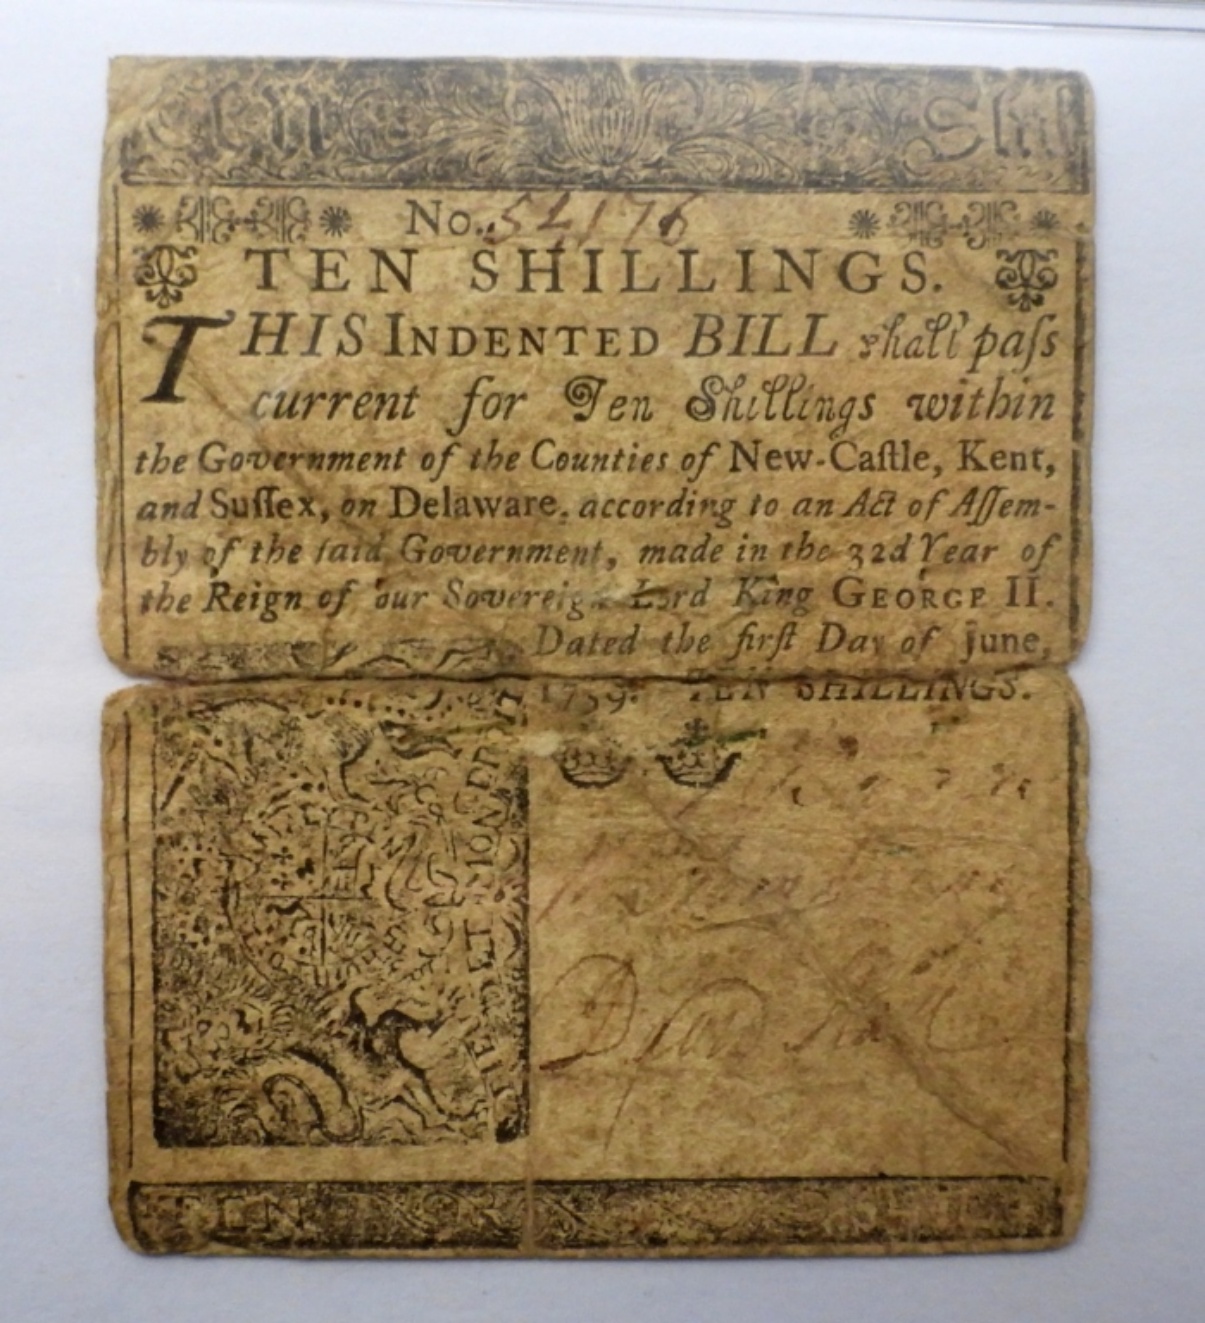 Shil
No. 54176
TEN SHILLINGS.
THIS INDENTED BILL ſhall paſs
current for Ten Shillings within
the Government of the Counties of New-Caſtle, Kent,
and Suſſex, on Delaware, according to an Act of Aſſem-
bly of the ſaid Government, made in the 32d Year of
the Reign of our Sovereign Lord King GEORGE II.
Dated the firſt Day of June,
1759. TEN SHILLINGS.
DIEU ET MON DROIT
TEN